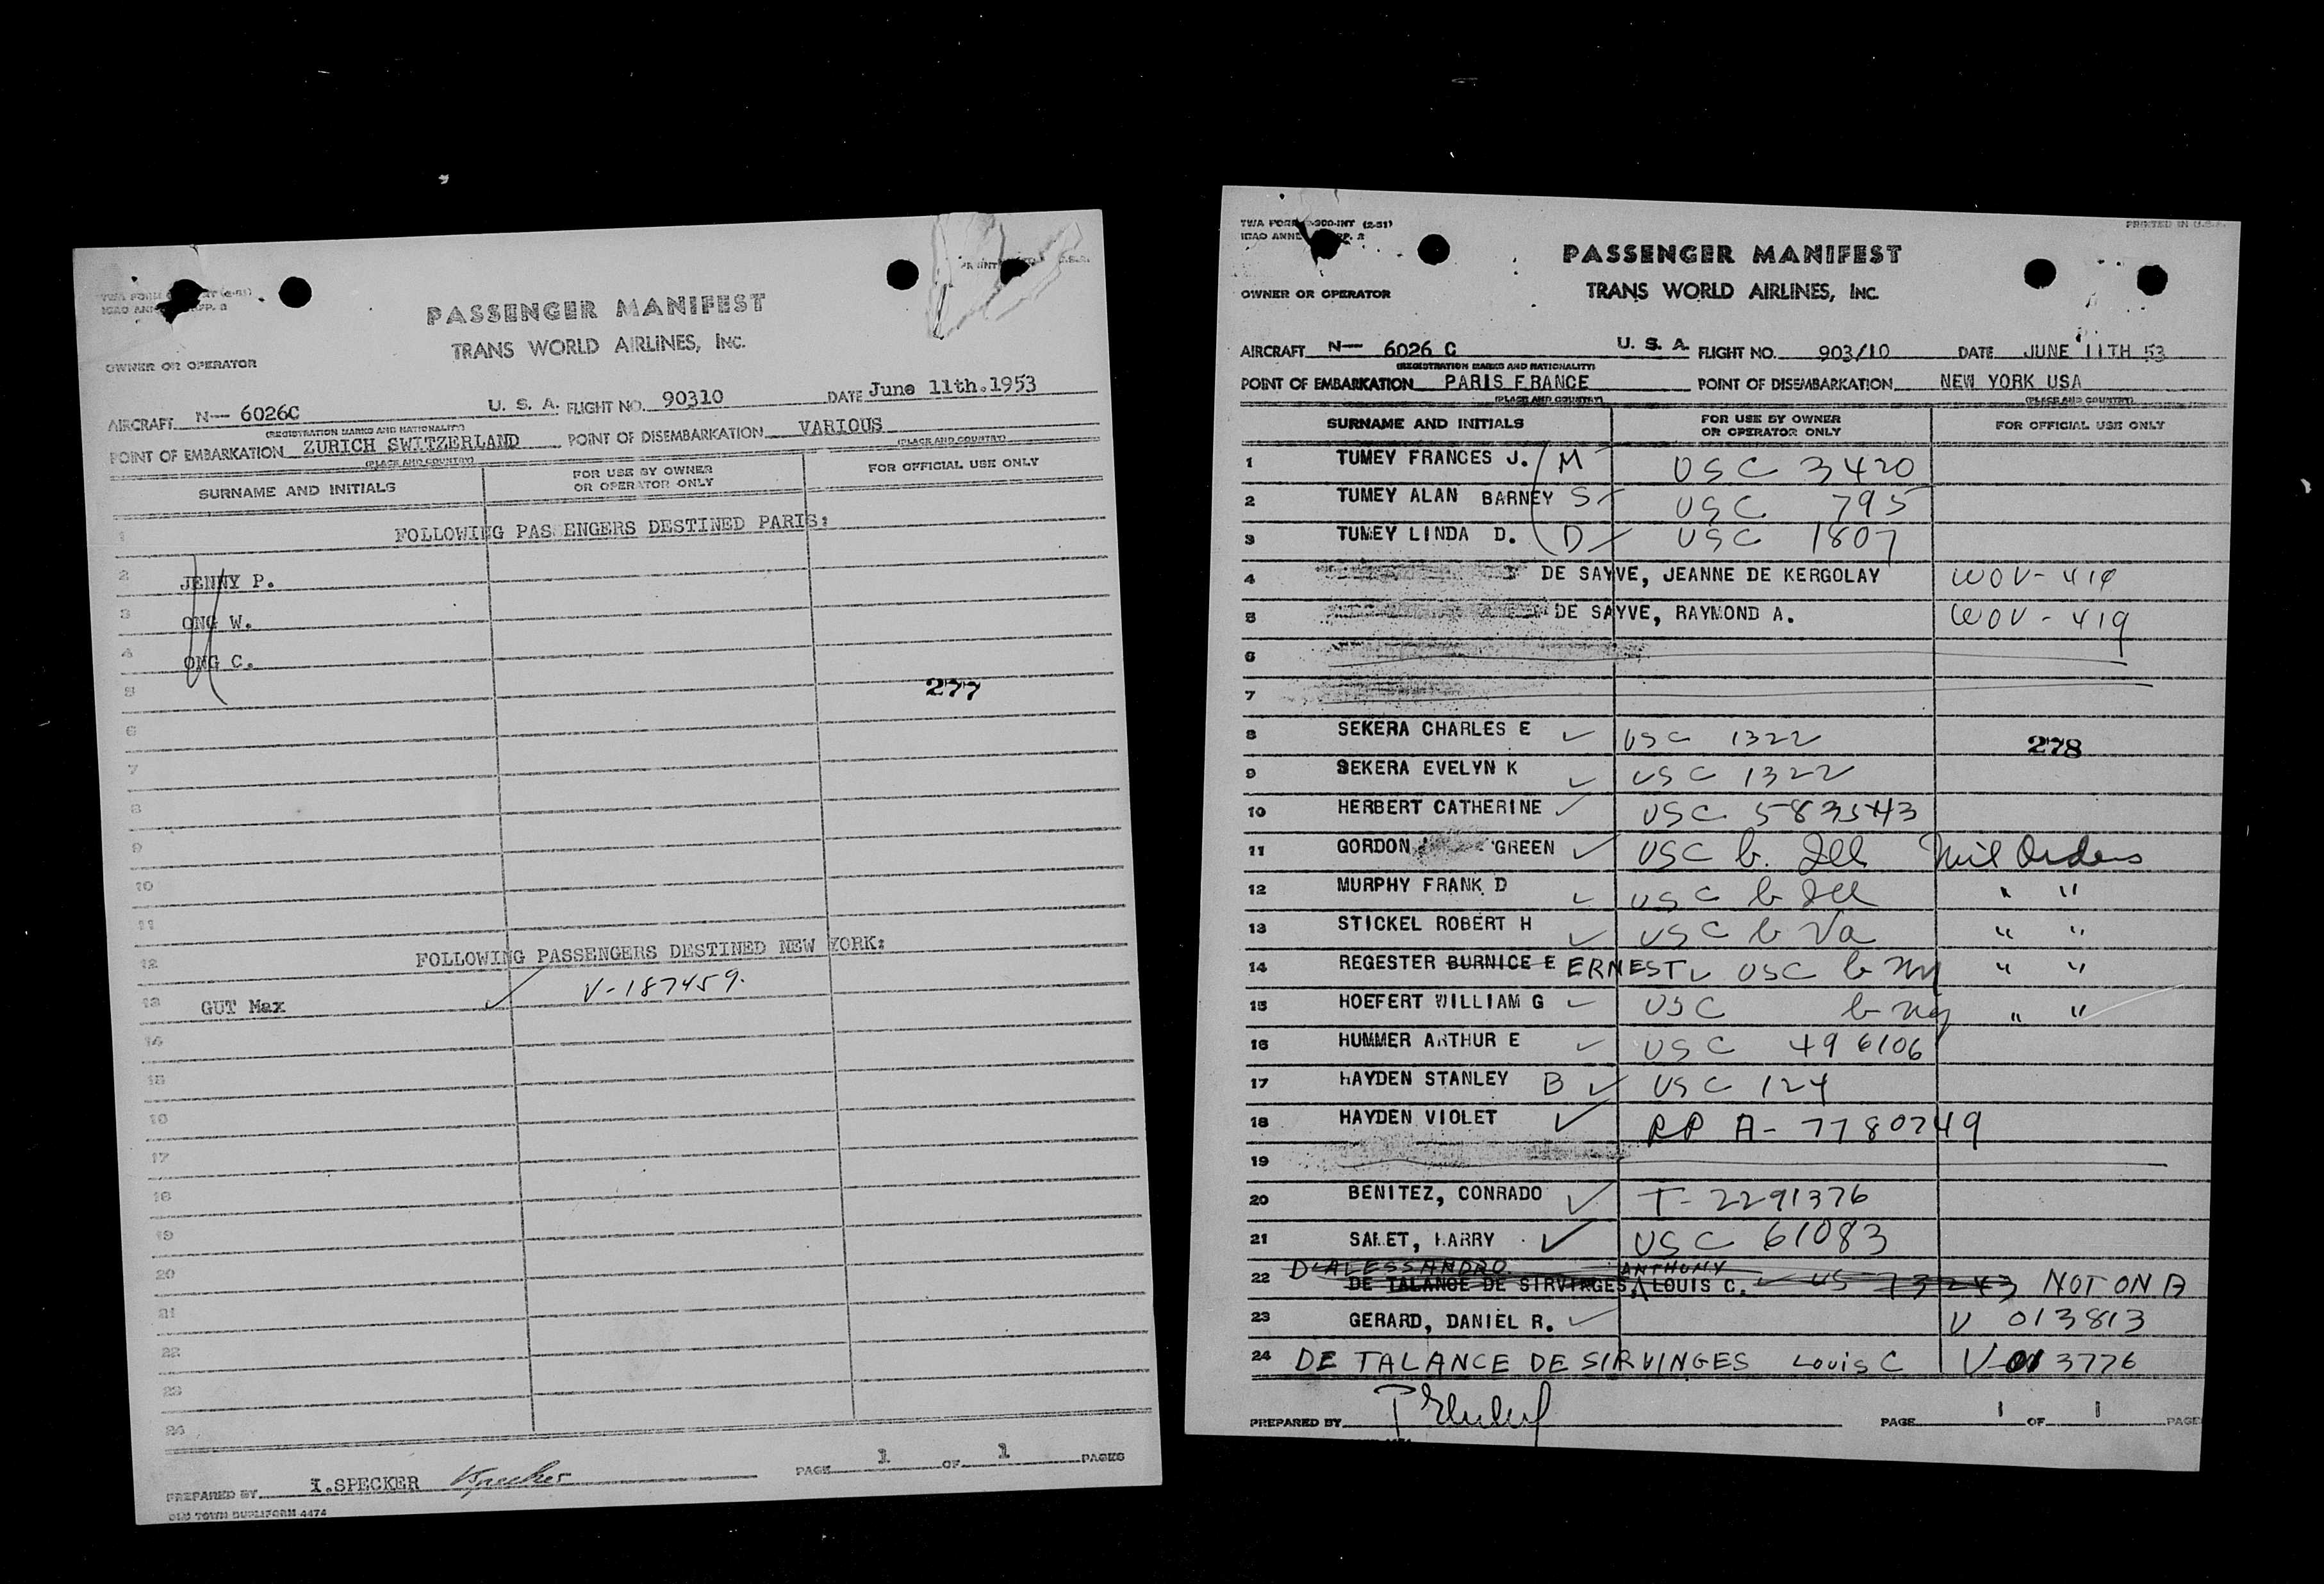 PASSENGER MANIFEST
TRANS WORLD AIRLINES, INC.
OWNER OR OPERATOR
AIRCRAFT N— 6026C U. S. A. FLIGHT NO. 90310 DATE June 11th.1953
(REGISTRATION MARKS AND NATIONALITY)
POINT OF EMBARKATION ZURICH SWITZERLAND POINT OF DISEMBARKATION VARIOUS
(PLACE AND COUNTRY) (PLACE AND COUNTRY)
SURNAME AND INITIALS FOR USE BY OWNER OR OPERATOR ONLY FOR OFFICIAL USE ONLY
1 FOLLOWING PAS ENGERS DESTINED PARIS:
2 JENNY P.
3 ONG W.
4 ONG C.
5 277
6
7
8
9
10
11
12 FOLLOWING PASSENGERS DESTINED NEW YORK:
13 GUT Max ✓ V-187459.
14
15
16
17
18
19
20
21
22
23
24
PREPARED BY I.SPECKER Specker PAGE 1 OF 1 PAGES
OLD TOWN DUPLIFORM 4474
TWA FORM -300-INT (2-51) PRINTED IN U.S.A.
ICAO ANNE P. 2
PASSENGER MANIFEST
TRANS WORLD AIRLINES, INC.
OWNER OR OPERATOR
AIRCRAFT N— 6026 C U. S. A. FLIGHT NO. 903/10 DATE JUNE 11TH 53
(REGISTRATION MARKS AND NATIONALITY)
POINT OF EMBARKATION PARIS FRANCE POINT OF DISEMBARKATION NEW YORK USA
(PLACE AND COUNTRY) (PLACE AND COUNTRY)
SURNAME AND INITIALS FOR USE BY OWNER OR OPERATOR ONLY FOR OFFICIAL USE ONLY
1 TUMEY FRANCES J. M USC 3420
2 TUMEY ALAN BARNEY S USC 795
3 TUMEY LINDA D. D USC 1807
4 DE SAYVE, JEANNE DE KERGOLAY WOV-419
5 DE SAYVE, RAYMOND A. WOV-419
6
7
8 SEKERA CHARLES E ✓ USC 1322 278
9 SEKERA EVELYN K ✓ USC 1322
10 HERBERT CATHERINE ✓ USC 583543
11 GORDON GREEN ✓ USC b. Ill Mil Orders
12 MURPHY FRANK D ✓ USC b Ill " "
13 STICKEL ROBERT H ✓ USC b Va " "
14 REGESTER BURNICE E ERNEST ✓ USC b NY " "
15 HOEFERT WILLIAM G ✓ USC b NJ " "
16 HUMMER ARTHUR E ✓ USC 496106
17 HAYDEN STANLEY B ✓ USC 124
18 HAYDEN VIOLET ✓ RP A-7780749
19
20 BENITEZ, CONRADO ✓ T-2291376
21 SAMET, HARRY ✓ USC 61083
D'ALESSANDRO ANTHONY
22 DE TALANCE DE SIRVINGES, LOUIS C. ✓ US 13243 NOT ON B
23 GERARD, DANIEL R. ✓ V 013813
24 DE TALANCE DE SIRVINGES Louis C V-013776
PREPARED BY PAGE 1 OF 1 PAGE